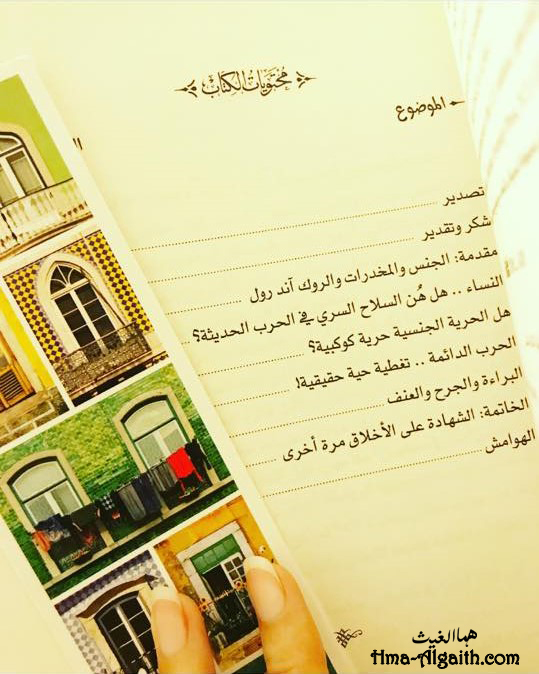 محتويات الكتاب
الموضوع
تصدير
شكر وتقدير
مقدمة: الجنس والمخدرات والروك آند رول
النساء .. هل هُن السلاح السري في الحرب الحديثة؟
هل الحرية الجنسية حرية كوكبية؟
الحرب الدائمة .. تغطية حية حقيقية!
البراءة والجرح والعنف
الخاتمة: الشهادة على الأخلاق مرة أخرى
الهوامش
هماالغيث
Hma-Algaith.com